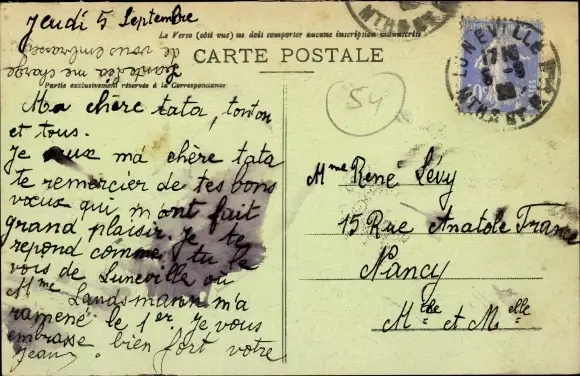 Jeudi 5 Septembre
Le Verso (côté vue) ne doit comporter aucune inscription manuscrite
CARTE POSTALE
Partie exclusivement réservée à la Correspondance
me charge
de vous embrasser
54
LUNEVILLE
17
5-9
MTHE
Ma chère tata, tonton
et tous.
Je veux ma chère tata
te remercier de tes bons
vœux qui m'ont fait
grand plaisir. Je te
repond comme tu le
vois de Luneville où
Mme Landsmann m'a
ramené le 1er. Je vous
embrasse bien fort votre
Jean
Mme René Lévy
15 Rue Anatole France
Nancy
Mthe et Melle